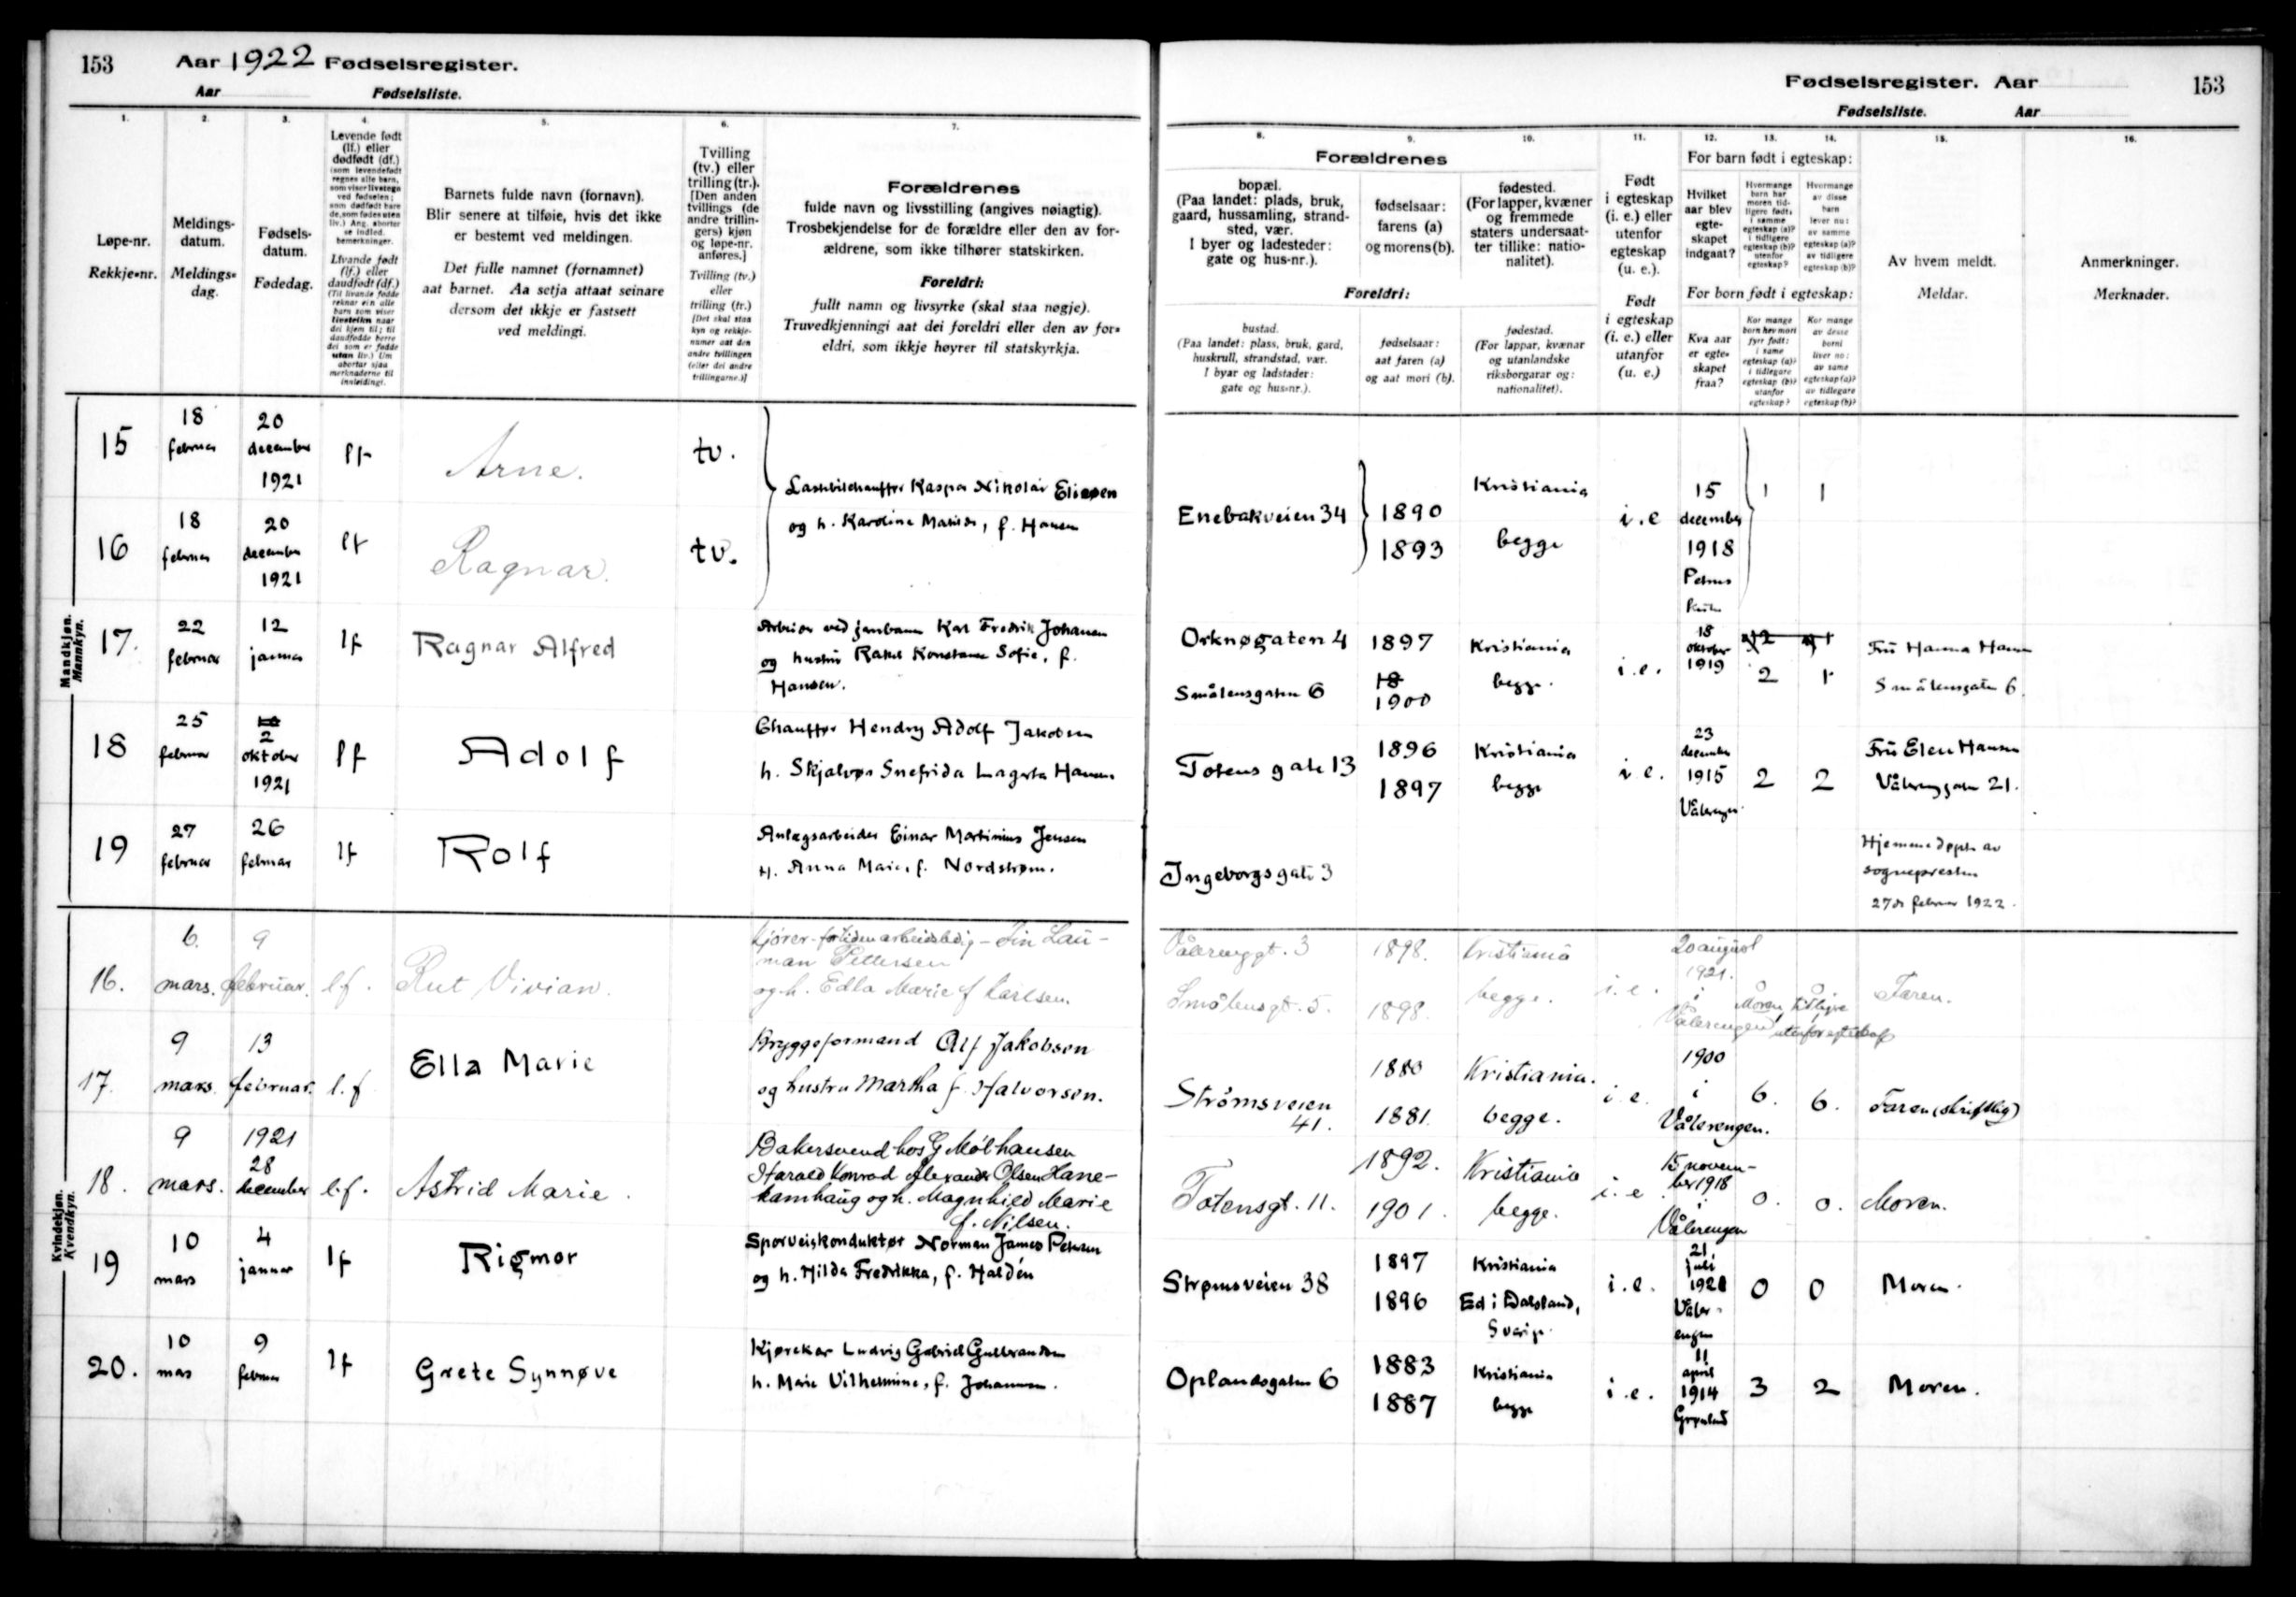 153 Aar 1922 Fødselsregister.
Aar Fødselsliste.
1. 2. 3. 4. 5. 6. 7.
Løpe-nr.
Rekkje-nr.
Meldings-
datum.
Meldings-
dag.
Fødsels-
datum.
Fødedag.
Levende født
(lf.) eller
dødfødt (df.)
(som levendefødt
regnes alle barn,
som viser livstegn
ved fødselen;
som dødfødt bare
de, som fødes uten
liv.) Ang. aborter
se indled.
bemerkninger.
Livande født
(lf.) eller
daudfødt (df.)
(Til livande fødde
reknar ein alle
born som viser
livsteikn naar
dei kjem til; til
daudfødde berre
dei som er fødde
utan liv.) Um
abortar sjaa
merknaderne til
innleidingi.
Barnets fulde navn (fornavn).
Blir senere at tilføie, hvis det ikke
er bestemt ved meldingen.
Det fulle namnet (fornamnet)
aat barnet. Aa setja attaat seinare
dersom det ikkje er fastsett
ved meldingi.
Tvilling
(tv.) eller
trilling (tr.).
[Den anden
tvillings (de
andre trillin-
gers) kjøn
og løpe-nr.
anføres.]
Tvilling (tv.)
eller
trilling (tr.)
[Det skal staa
kyn og rekkje-
numer aat den
andre tvillingen
(eller dei andre
trillingarne.)]
Forældrenes
fulde navn og livsstilling (angives nøiagtig).
Trosbekjendelse for de forældre eller den av for-
ældrene, som ikke tilhører statskirken.
Foreldri:
fullt namn og livsyrke (skal staa nøgje).
Truvedkjenningi aat dei foreldri eller den av for-
eldri, som ikkje høyrer til statskyrkja.
Mandkjøn.
Mannkyn.
15
18
februar
20
december
1921
lf
Arne.
tv.
Lastebilchauffør Kaspar Nikolai Eliesen
og h. Karoline Matilde, f. Hansen
16
18
februar
20
december
1921
lf
Ragnar.
tv.
17.
22
februar
12
januar
lf
Ragnar Alfred
Arbeider ved jernbanen Karl Fredrik Johansen
og hustru Rakel Konstanse Sofie, f.
Hansen.
18
25
februar
10
2
oktober
1921
lf
Adolf
Chauffør Hendry Adolf Jakobsen
h. Skjalvør Snefrida Lagerta Hansen
19
27
februar
26
februar
lf
Rolf
Anlægsarbeider Einar Martinius Jensen
H. Anna Marie, f. Nordstrøm.
Kvindekjøn.
Kvendkyn.
16.
6.
mars.
9
februar.
l.f.
Rut Vivian.
Kjører - fortiden arbeidsledig - Finn Lau-
man Pettersen
og h. Edla Marie f Karlsen.
17.
9
mars.
13
februar.
l.f
Ella Marie
Bryggeformand Alf Jakobsen
og hustru Martha f. Halvorsen.
18.
9
mars.
1921
28
december
l.f.
Astrid Marie.
Bakersvend hos G Mølhausen
Harald Konrad Alexander Olsen Hane-
kamhaug og h. Magnhild Marie
f. Nilsen.
19
10
mars
4
januar
lf
Rigmor
Sporveiskonduktør Norman James Petersen
og h. Hilda Fredrikka, f. Haldén
20.
10
mars
9
februar
lf
Grete Synnøve
Kjørekar Ludvig Gabriel Gulbrandsen
h. Marie Vilhelmine, f. Johannsen.
Fødselsregister. Aar 153
Fødselsliste. Aar
8. 9. 10. 11. 12. 13. 14. 15. 16.
Forældrenes
bopæl.
(Paa landet: plads, bruk,
gaard, hussamling, strand-
sted, vær.
I byer og ladesteder:
gate og hus-nr.).
fødselsaar:
farens (a)
og morens (b).
fødested.
(For lapper, kvæner
og fremmede
staters undersaat-
ter tillike: natio-
nalitet).
Foreldri:
bustad.
(Paa landet: plass, bruk, gard,
huskrull, strandstad, vær.
I byar og ladstader:
gate og hus-nr.).
fødselsaar:
aat faren (a)
og aat mori (b).
fødestad.
(For lappar, kvænar
og utanlandske
riksborgarar og:
nationalitet).
Født
i egteskap
(i. e.) eller
utenfor
egteskap
(u. e.).
Født
i egteskap
(i. e.) eller
utanfor
(u. e.)
For barn født i egteskap:
Hvilket
aar blev
egte-
skapet
indgaat?
Hvormange
barn har
moren tid-
ligere født:
i samme
egteskap (a)?
i tidligere
egteskap (b)?
utenfor
egteskap?
Hvormange
av disse
barn
lever nu:
av samme
egteskap (a)?
av tidligere
egteskap (b)?
For born født i egteskap:
Kva aar
er egte-
skapet
fraa?
Kor mange
born hev mori
fyrr født:
i same
egteskap (a)?
i tidlegare
egteskap (b)?
utanfor
egteskap?
Kor mange
av desse
borni
liver no:
av same
egteskap (a)?
av tidlegare
egteskap (b)?
Av hvem meldt.
Meldar.
Anmerkninger.
Merknader.
Enebakveien 34
1890
1893
Kristiania
begge
i.e
15
december
1918
Petrus
Kirke
1
1
Orknøgaten 4
Smålensgaten 6
1897
18
1900
Kristiania
begge.
i.e.
18
oktober
1919
a) 2
2
a) 1
1
Fru Hanna Hansen
Smålensgaten 6.
Totens gate 13
1896
1897
Kristiania
begge
i e.
23
december
1915
Vålerengen
2
2
Fru Elen Hansen
Vålerenggaten 21.
Ingeborgs gate 3
Hjemmedøpt av
sognepresten
27de februar 1922.
Vålerenggt. 3
Smålensgt. 5.
1898.
1898.
Kristiania
begge.
i.e.
20 august
1921.
i
Vålerengen
0
0
Moren tidligere
utenfor egteskap
Faren.
Strömsveien
41.
1880
1881.
Kristiania.
begge.
i.e.
1900
i
Vålerengen.
6.
6.
Faren (skriftlig)
Totensgt. 11.
1892.
1901.
Kristiania
begge.
i.e.
15 novem-
ber 1918
i
Vålerengen
0.
0.
Moren.
Strømsveien 38
1897
1896
Kristiania
Ed i Dalsland,
Sverige.
i.e.
21
juli
1921
Våler-
engen
0
0
Moren.
Oplandsgaten 6
1883
1887
Kristiania
begge
i.e.
11
april
1914
Grønland
3
2
Moren.